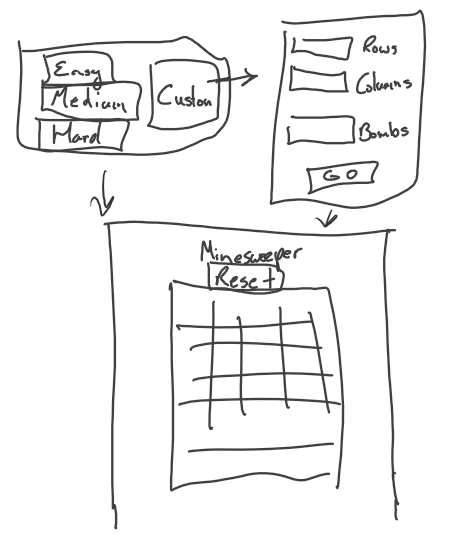 Easy
Medium
Hard
Custom
Rows
Columns
Bombs
GO
Minesweeper
Reset